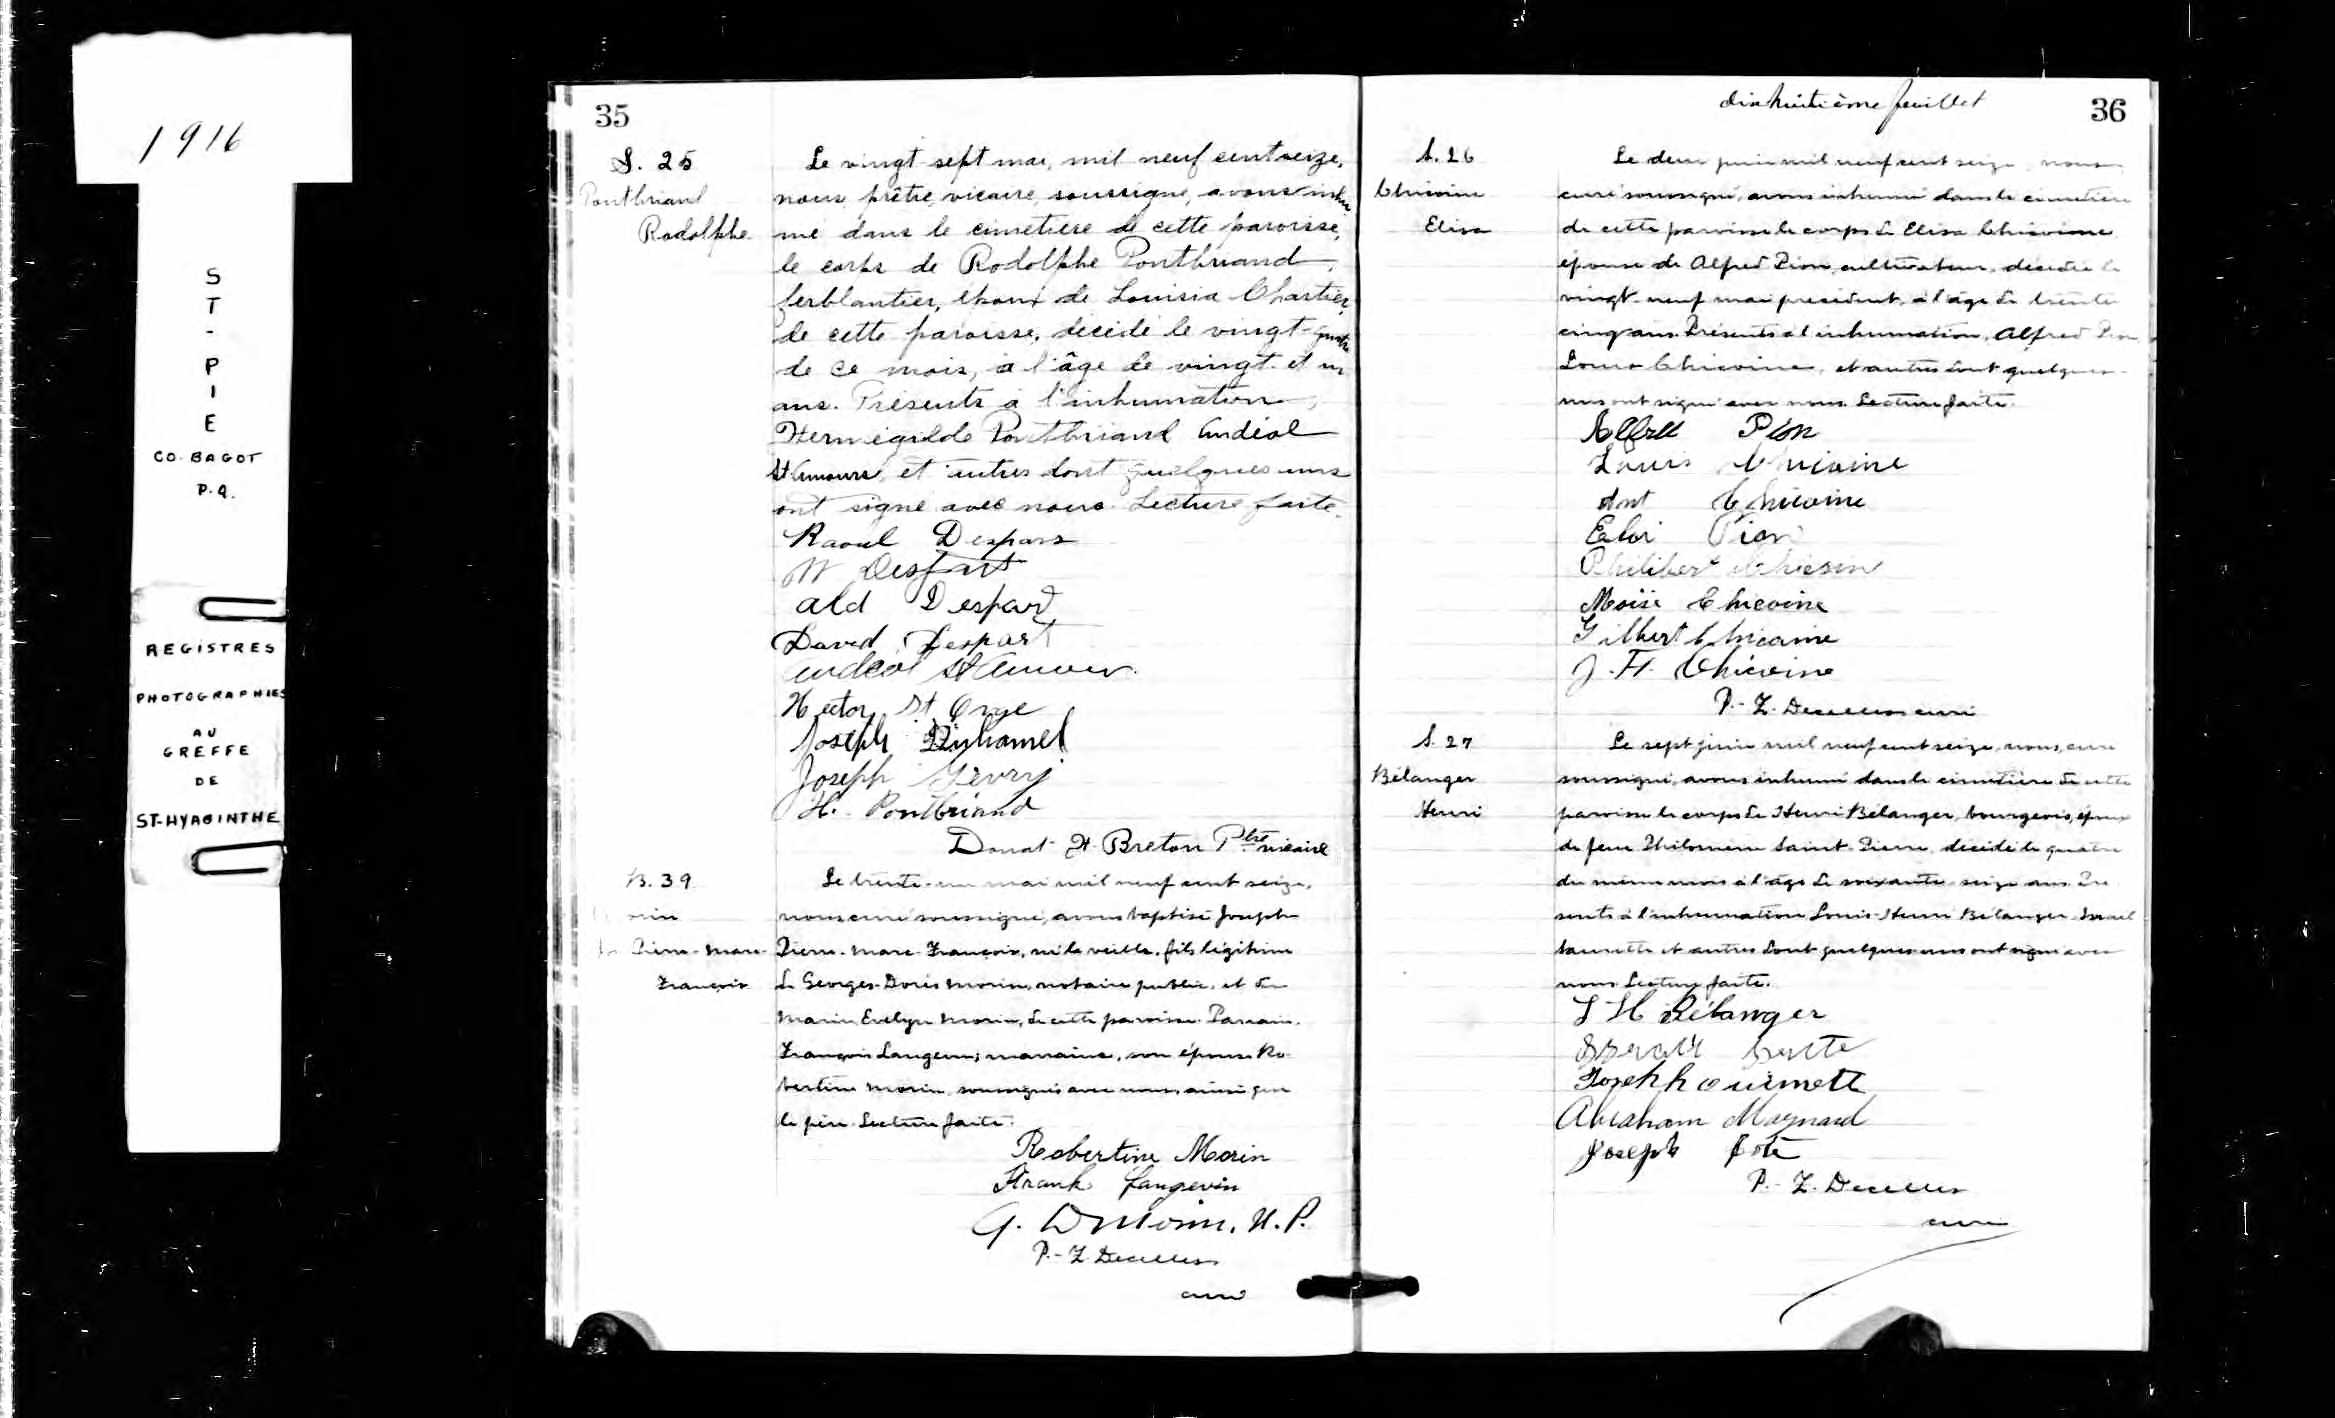 1916
ST-PIE
CO. BAGOT
P.Q.
REGISTRES
PHOTOGRAPHIES
AU
GREFFE
DE
ST-HYACINTHE
35
S. 25
Pontbriand
Rodolphe
Le vingt sept mai, mil neuf cent seize,
nous, prêtre, vicaire, soussigné, avons inhu
mé dans le cimetière de cette paroisse,
le corps de Rodolphe Pontbriand,
ferblantier, époux de Louisia Chartier,
de cette paroisse, décédé le vingt-quatre
de ce mois, à l'âge de vingt et un
ans. Présents à l'inhumation,
Herménégilde Pontbriand Andéol
St Amour, et autres dont quelques uns
ont signé avec nous. Lecture faite.
Raoul Despars
W Despars
Ald Despard
David Despart
Andéol St Amour
Hector St Onge
Joseph Duhamel
Joseph Gévry
H. Pontbriand
Donat St Breton Ptre vicaire
B. 39
Morin
Pierre-Marc-
François
Le trente-un mai mil neuf cent seize,
nous curé soussigné, avons baptisé Joseph
Pierre-Marc-François, né la veille, fils légitime
de Georges-Doris Morin, notaire public, et de
Marie Evelyn Morin, de cette paroisse. Parrain,
François Langevin; marraine, son épouse Ro-
bertine Morin, soussignés avec nous, ainsi que
le père. Lecture faite.
Robertine Morin
Frank Langevin
G. D Morin, N.P.
P.-Z. Decelles
curé
dixhuitième feuillet
36
S. 26
Chicoine
Elisa
Le deux juin mil neuf cent seize, nous
curé soussigné, avons inhumé dans le cimetière
de cette paroisse le corps de Elisa Chicoine
épouse de Alfred Pion, cultivateur, décédée le
vingt-neuf mai précédent, à l'âge de trente
cinq ans. Présents à l'inhumation, Alfred Pion,
Louis Chicoine, et autres dont quelques-
uns ont signé avec nous. Lecture faite.
Alfred Pion
Louis Chicoine
Ant Chicoine
Eloi Pion
Philibert Chicoine
Moïse Chicoine
Gilbert Chicoine
J. H. Chicoine
P.-Z. Decelles curé
S. 27
Bélanger
Henri
Le sept juin mil neuf cent seize, nous, curé
soussigné, avons inhumé dans le cimetière de cette
paroisse le corps de Henri Bélanger, bourgeois, époux
de feue Philomène Saint-Pierre, décédé le quatre
du même mois à l'âge de soixante-seize ans. Pré
sents à l'inhumation Louis-Henri Bélanger, Israël
et autres dont quelques uns ont signé avec
nous. Lecture faite.
L H Bélanger
Joseph Ouimette
Abraham Maynard
Joseph Coté
P.-Z. Decelles
curé